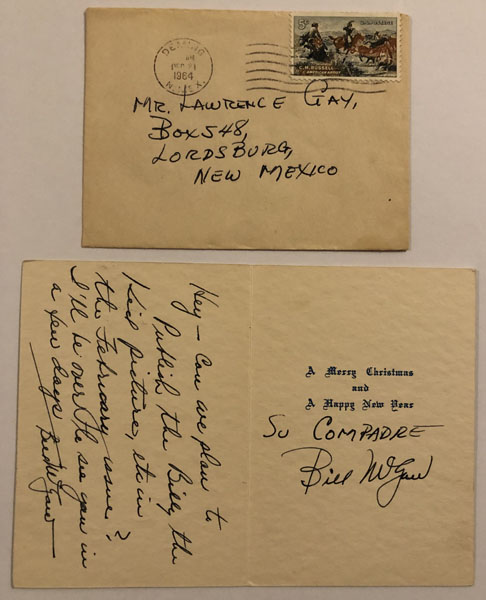 DEMING
DEC 21
1964
N. MEX.
5¢
C.M. RUSSELL
AMERICAN ARTIST
MR. LAWRENCE GAY,
BOX 548,
LORDSBURG,
NEW MEXICO
Hey - Can we plan to
Publish the Billy the
Kid picture, etc in
the February issue?
I'll be over to see you in
a few days
Bill McGaw
A Merry Christmas
and
A Happy New Year
SU COMPADRE
Bill McGaw